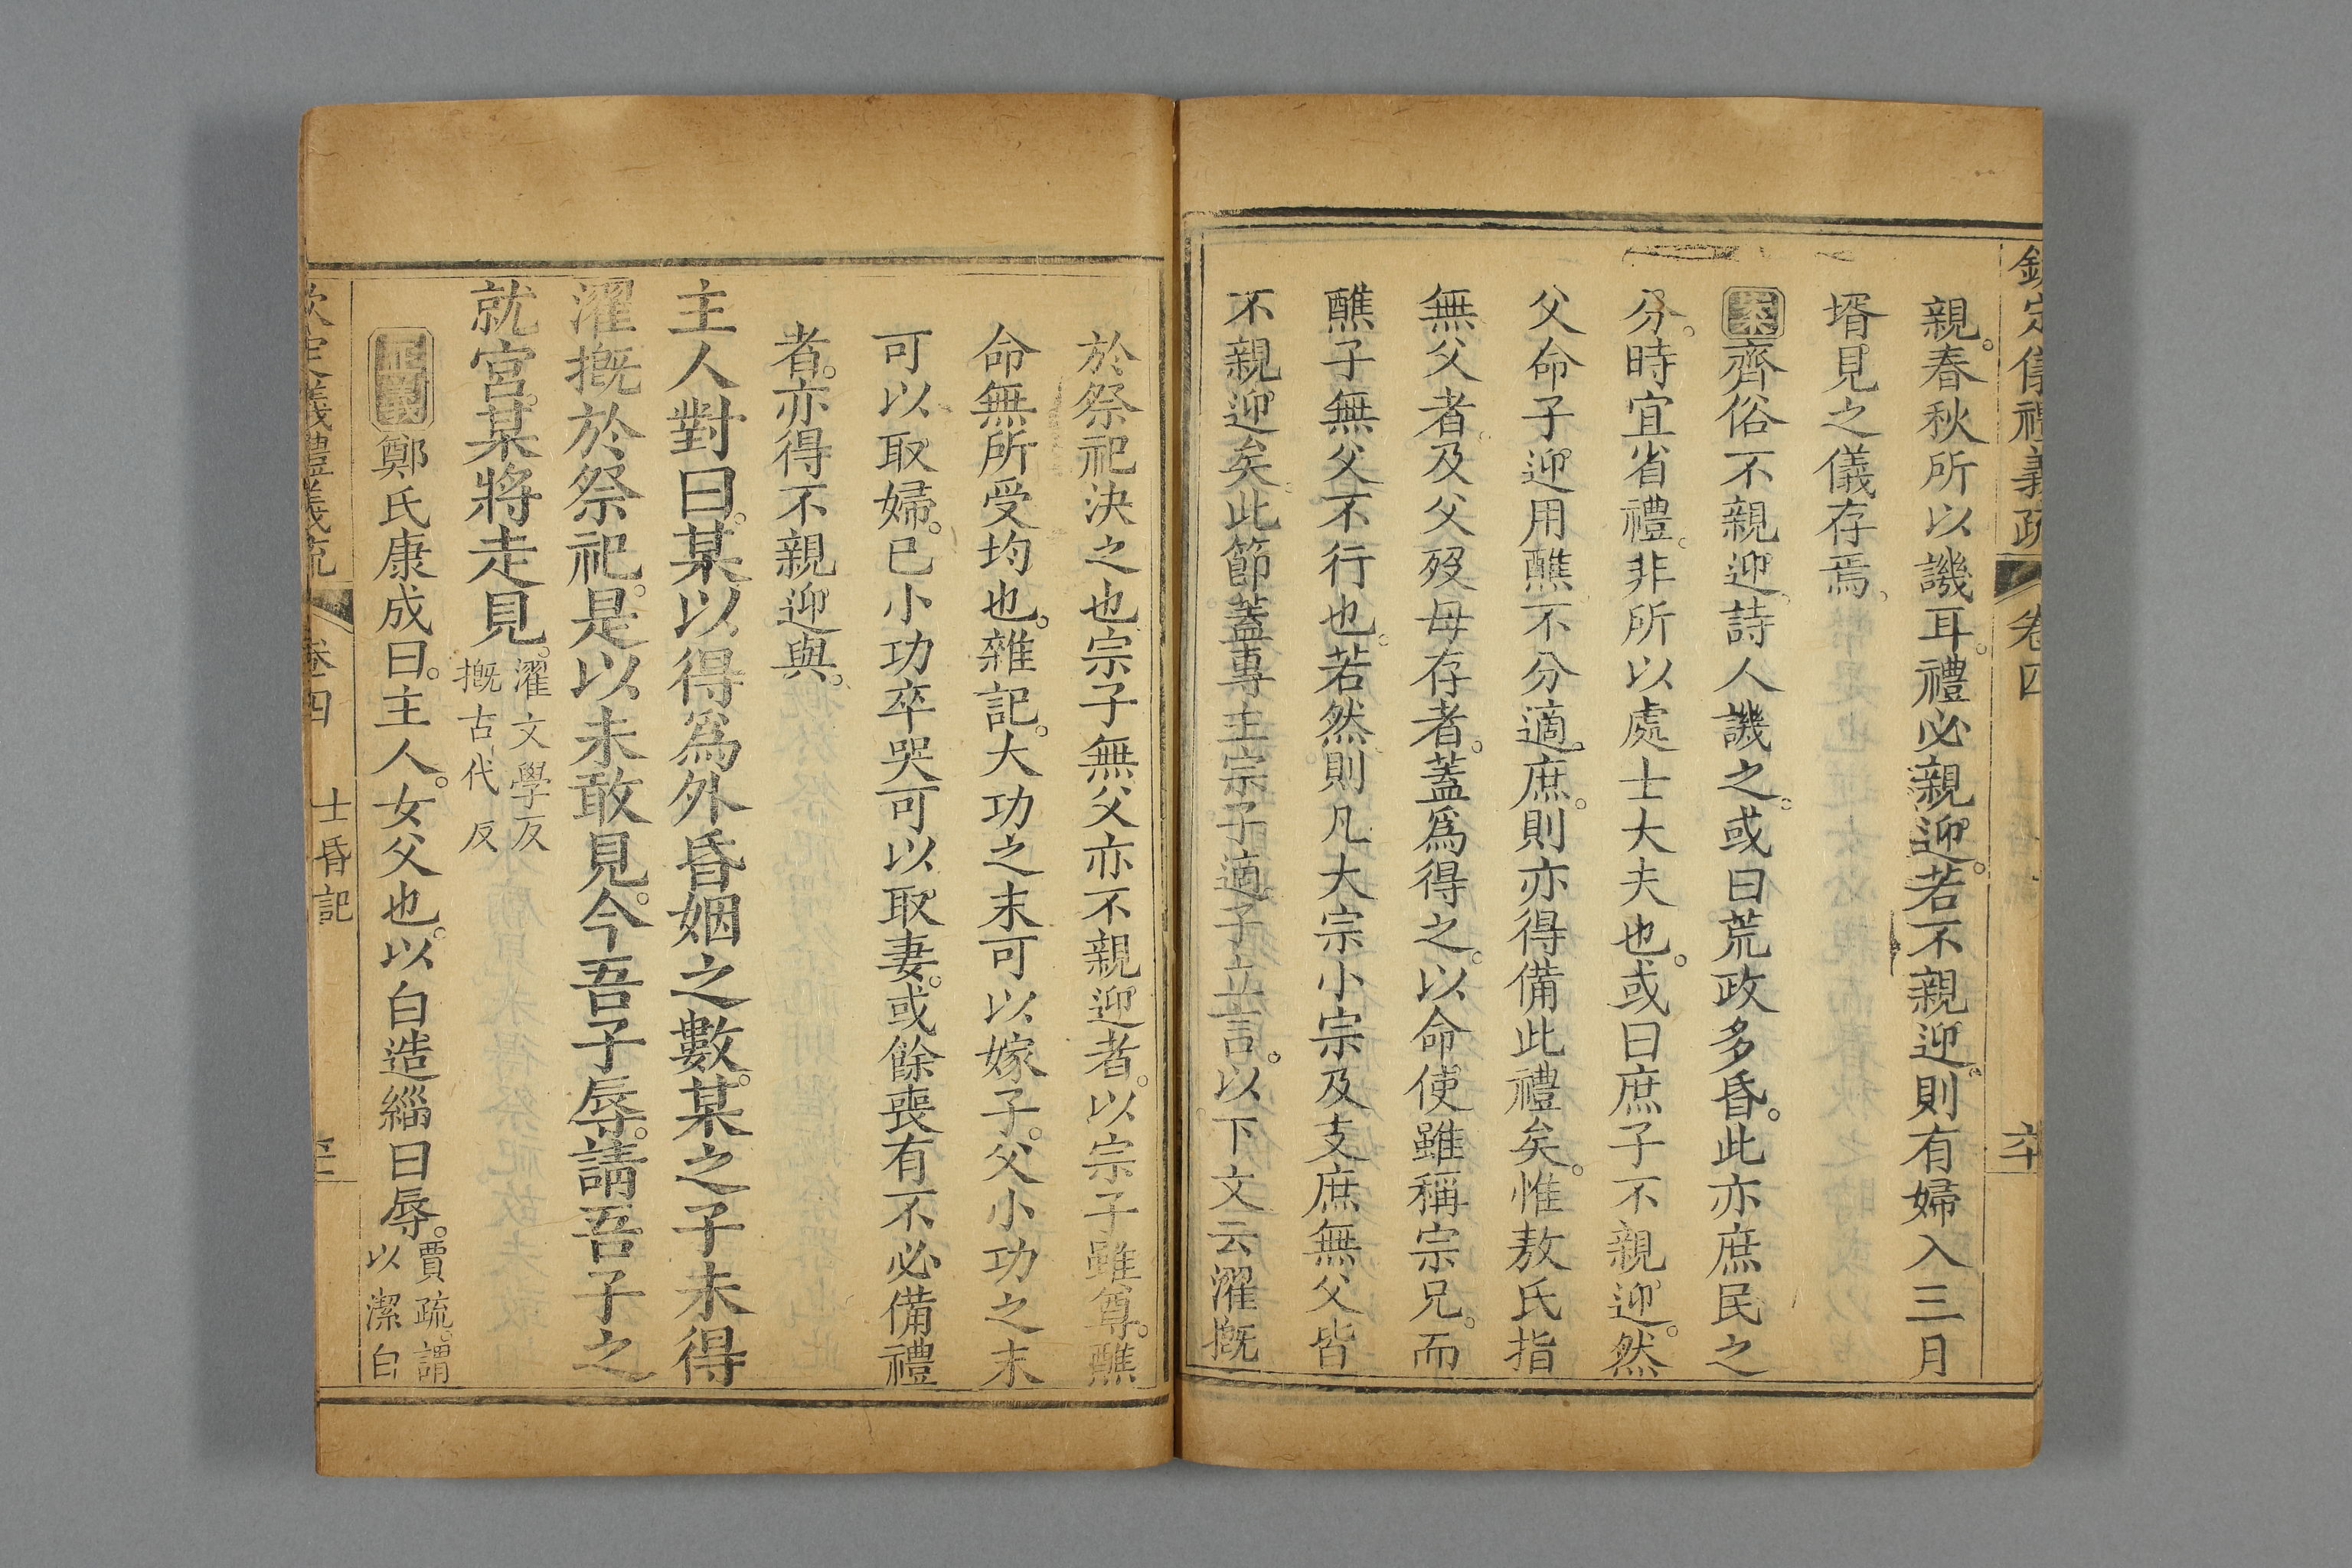 欽定儀禮義疏 卷四 六十
親。春秋所以譏耳。禮必親迎。若不親迎。則有婦入三月
壻見之儀存焉。
案齊俗不親迎。詩人譏之。或曰荒政多昏。此亦庶民之
分。時宜省禮。非所以處士大夫也。或曰庶子不親迎。然
父命子迎用醮。不分適庶。則亦得備此禮矣。惟敖氏指
無父者。及父歿母存者。蓋爲得之。以命使雖稱宗兄。而
醮子無父不行也。若然則凡大宗小宗及支庶無父皆
不親迎矣。此節蓋專主宗子適子立言。以下文云濯摡
於祭祀決之也宗子無父亦不親迎者。以宗子雖尊。醮
命無所受均也。雜記。大功之末可以嫁子。父小功之末
可以取婦。已小功卒哭可以取妻。或餘喪有不必備禮
者。亦得不親迎與。
主人對曰。某以得爲外昏姻之數。某之子未得
濯摡於祭祀。是以未敢見。今吾子辱。請吾子之
就宮。某將走見。
濯文學反
摡古代反
正義鄭氏康成曰。主人。女父也。以白造緇曰辱。
賈疏。謂
以潔白
欽定儀禮義疏 卷四 士昏記